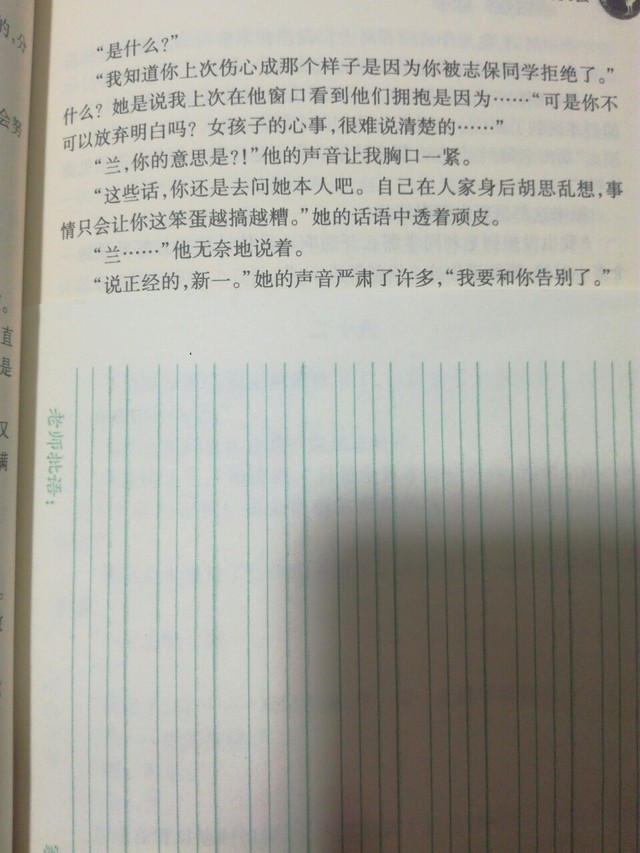 “是什么?”
“我知道你上次伤心成那个样子是因为你被志保同学拒绝了。”
什么? 她是说我上次在他窗口看到他们拥抱是因为……“可是你不
可以放弃明白吗? 女孩子的心事,很难说清楚的……”
“兰,你的意思是?!”他的声音让我胸口一紧。
“这些话,你还是去问她本人吧。自己在人家身后胡思乱想,事
情只会让你这笨蛋越搞越糟。”她的话语中透着顽皮。
“兰……”他无奈地说着。
“说正经的,新一。”她的声音严肃了许多,“我要和你告别了。”
老师批语: